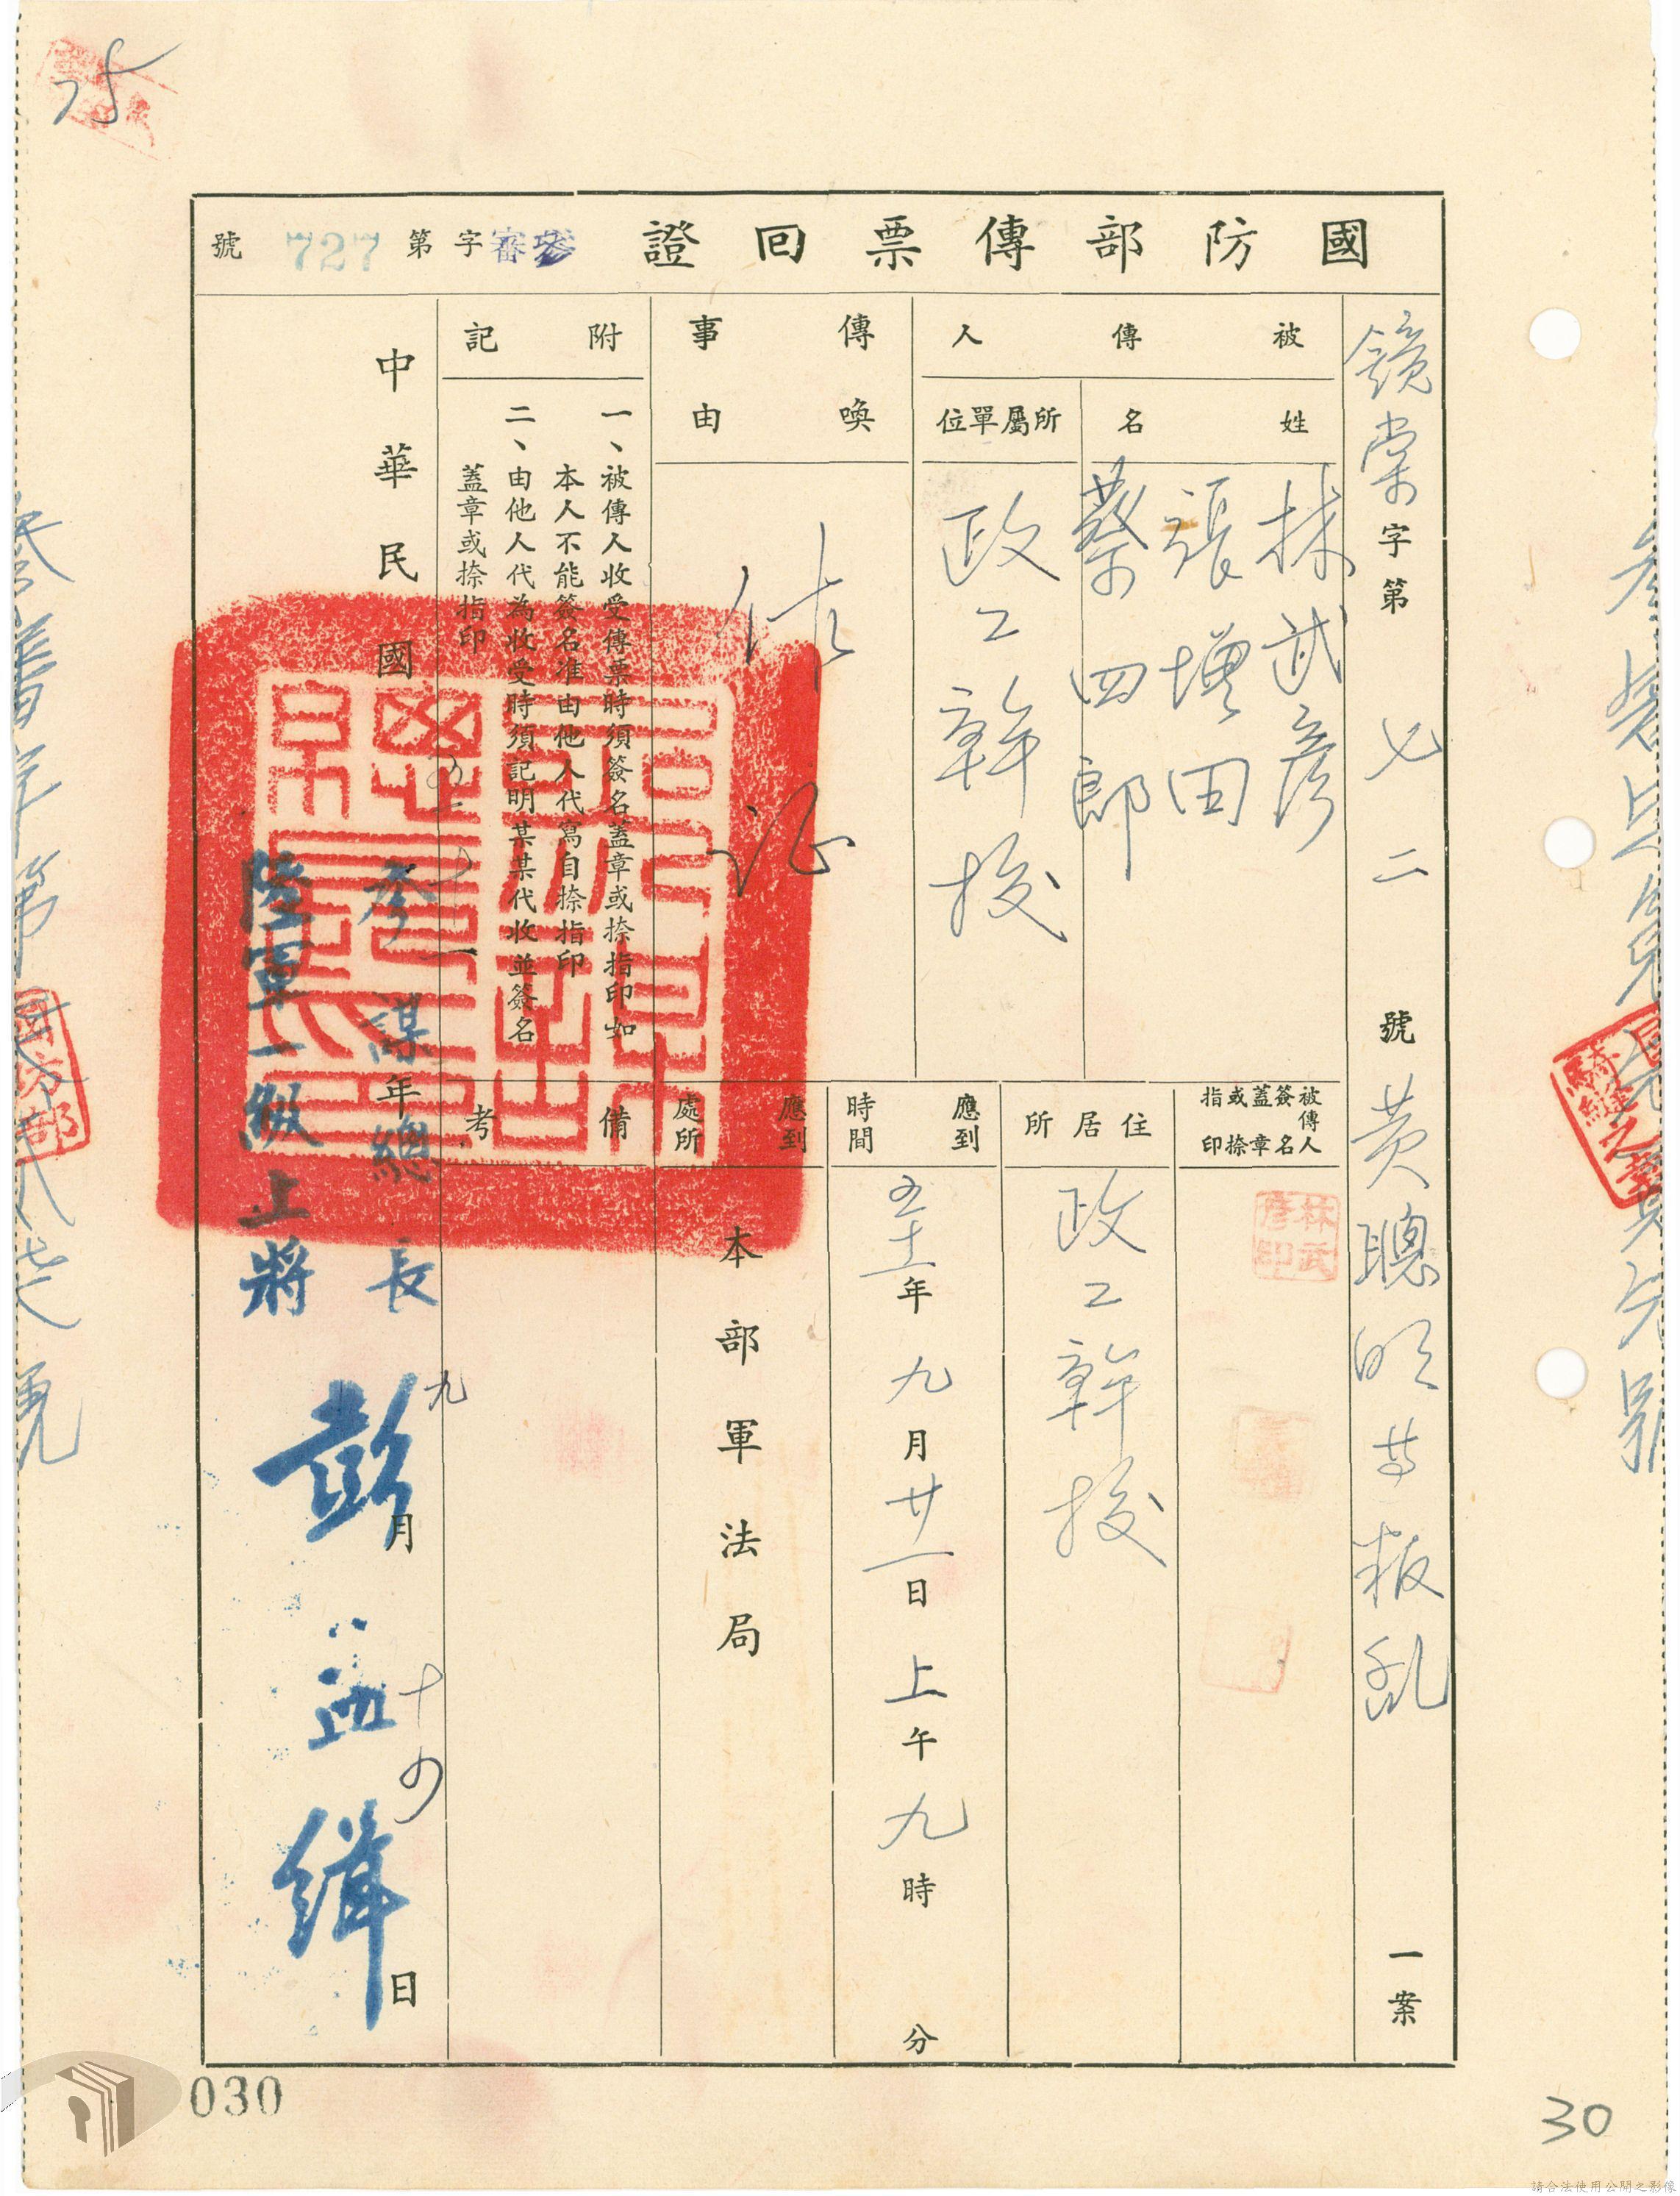 國防部傳票回證
參審字第727號
鏡棠字第七二號黃聰明等叛亂一案
被傳人
姓名
林武彥
張增田
蔡四郎
所屬單位
政工幹校
傳喚事由
作証
附記
一、被傳人收受傳票時須簽名蓋章或捺指印如
本人不能簽名准由他人代寫自捺指印
二、由他人代為收受時須記明某某代收並簽名
蓋章或捺指印
被傳人簽名蓋章或捺指印
林武彥印
住居所
政工幹校
應到時間
五十一年九月廿一日上午九時分
應到處所
本部軍法局
備考
中華民國五十一年九月十四日
參謀總長
陸軍一級上將
彭孟緝
國防部
騎縫之章
030
30
請合法使用公開之影像